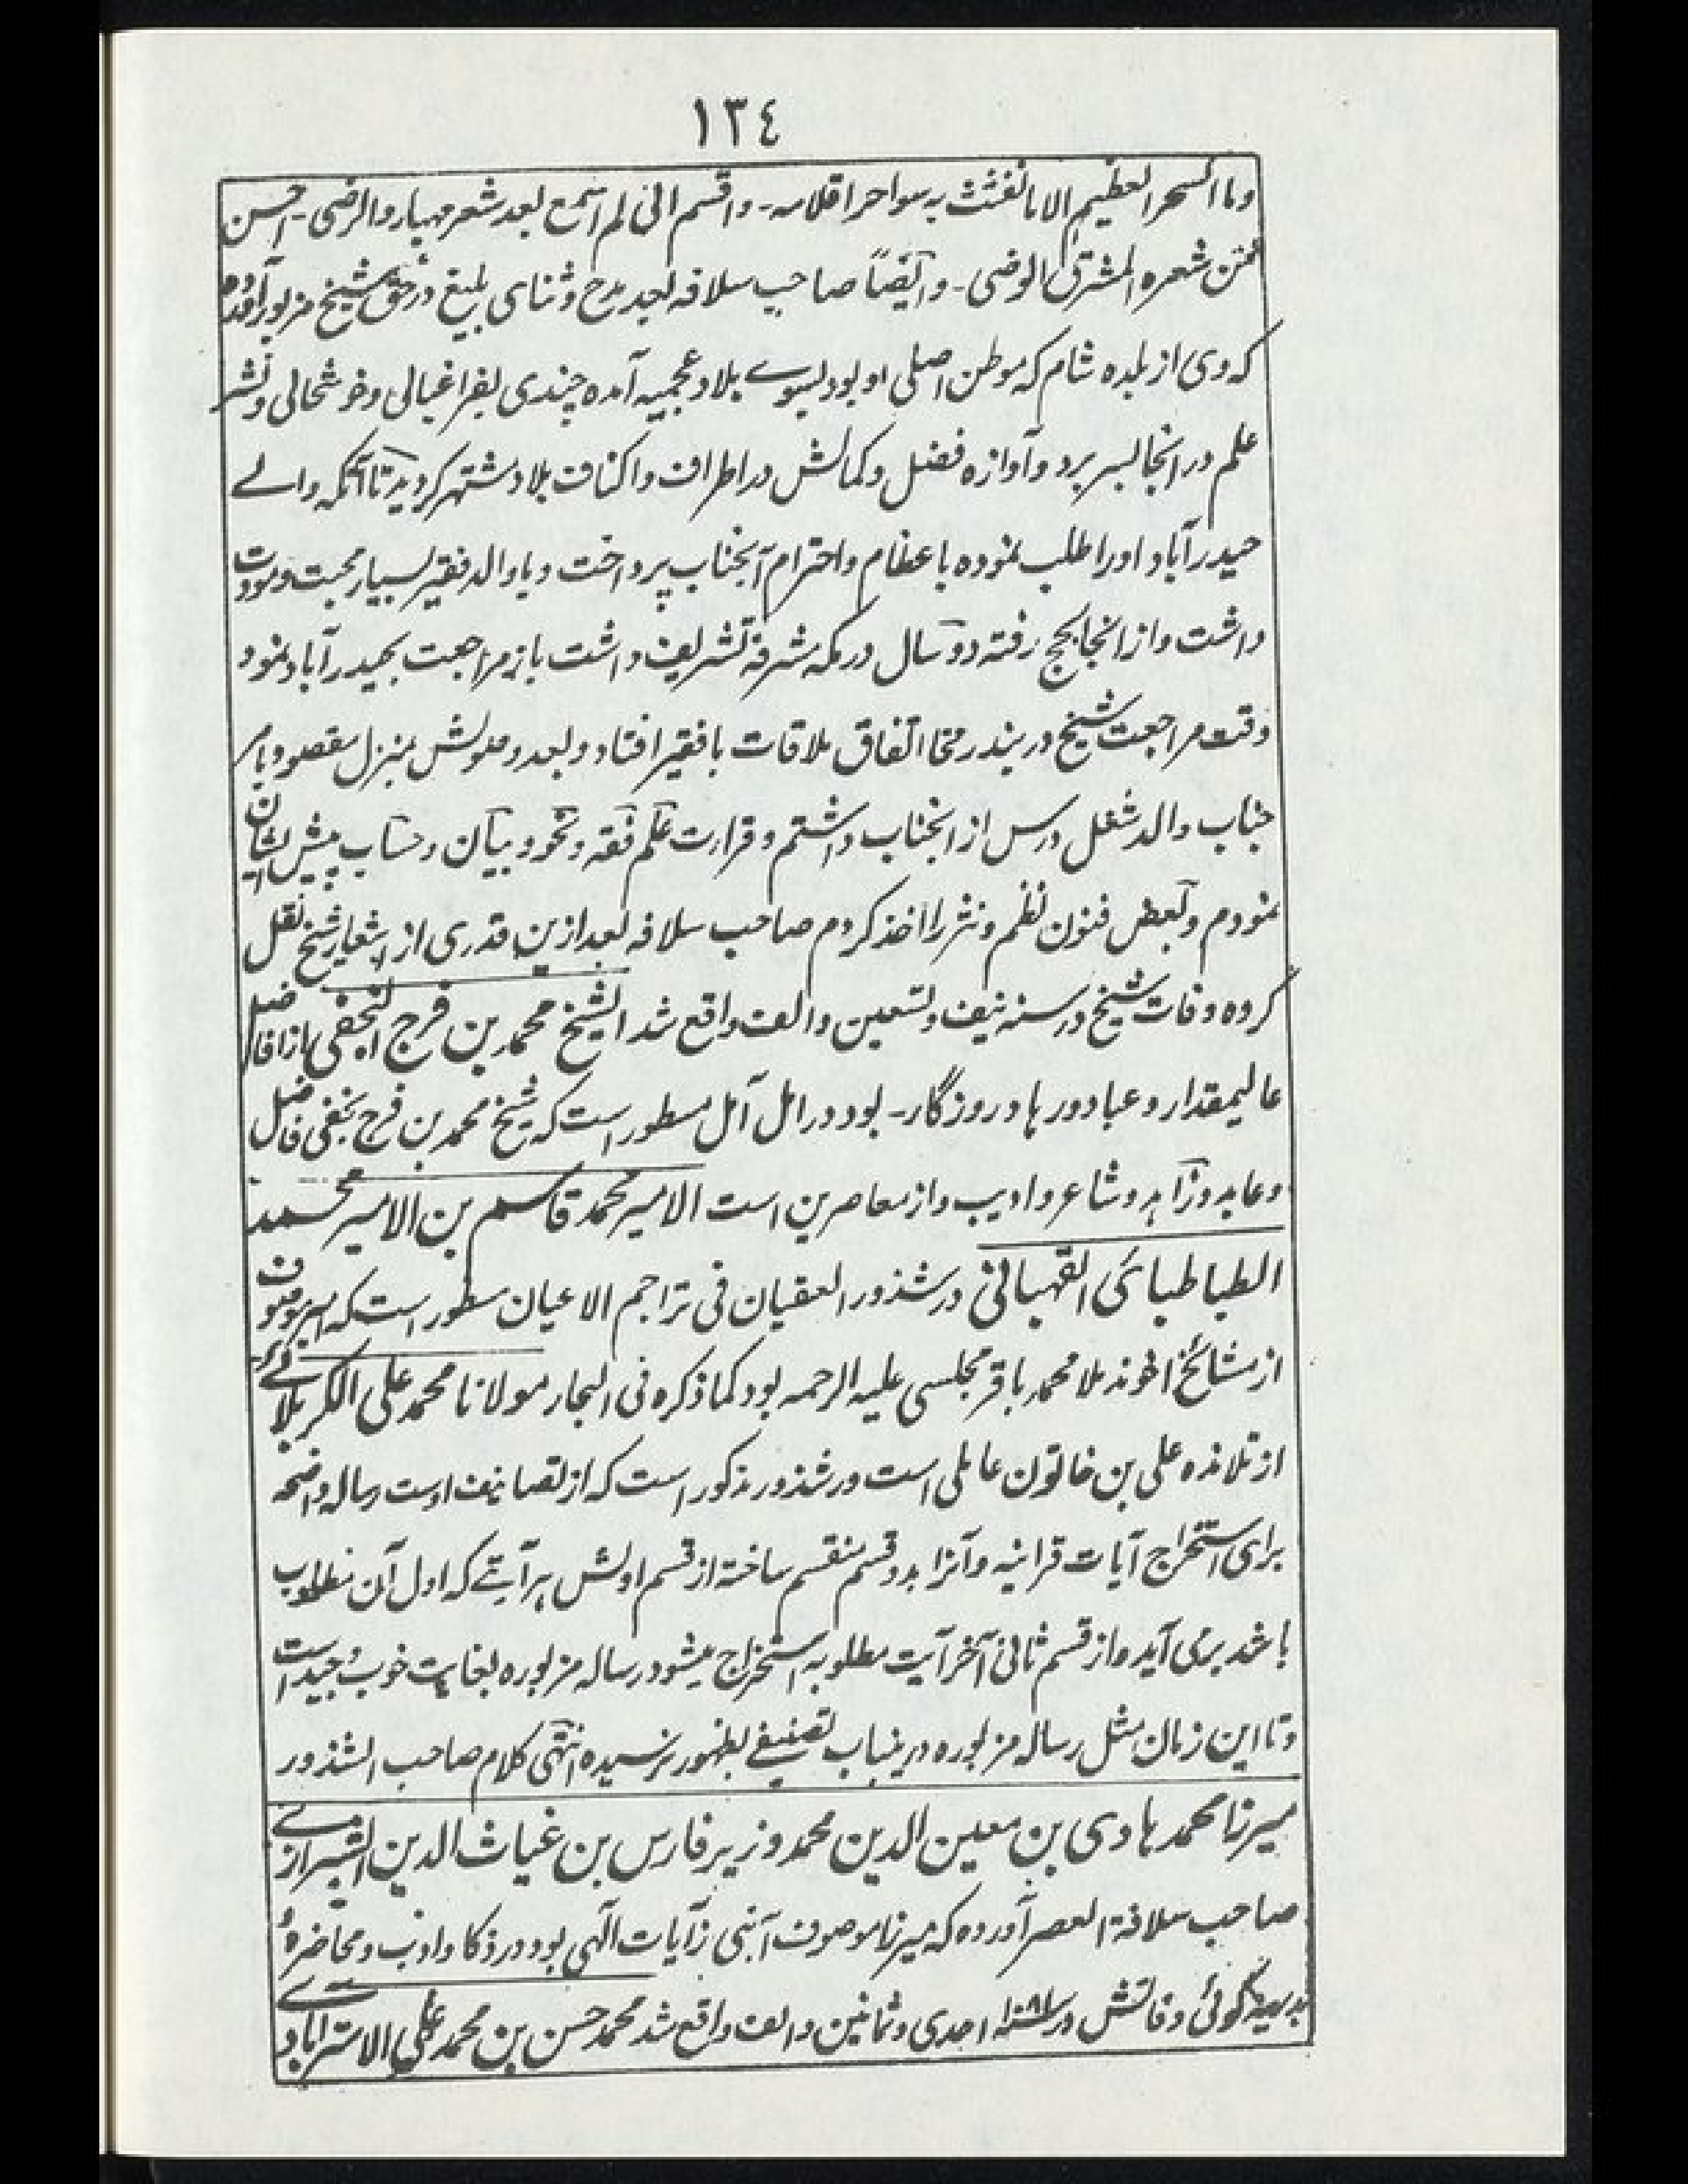 ١٣٤
وما السحر العظيم الا ما نفثت به سواحر اقلامه - واقسم انی لم اسمع بعد شعر مهیار والرضی - احسن
من شعره المشرق الوضی - وایضاً صاحب سلافه بعد مدح وثنای بلیغ در حق شیخ مزبور آورده
که وی از بلده شام که موطن اصلی او بود بسوے بلاد عجمیه آمده چندی بفراغبالی وخوشحالی ونشر
علم در انجا بسر برد وآوازه فضل وکمالش در اطراف واکناف بلاد مشتهر گردید تا آنکه والے
حیدرآباد اورا طلب نموده باعظام واحترام آنجناب پرداخت وبا والد فقیر بسیار محبت ومودت
داشت واز انجا بحج رفته دو سال در مکه مشرفه تشریف داشت باز مراجعت بحیدرآباد نمود
وقت مراجعت شیخ در بندر مخا اتفاق ملاقات با فقیر افتاد وبعد وصولش بمنزل مقصود بامر
جناب والد شغل درس از انجناب داشتم وقرارت علم فقه ونحو وبیان وحساب پیش ایشان
نمودم وبعض فنون نظم ونثر را اخذ کردم صاحب سلافه بعد ازین قدری از اشعار شیخ نقل
کرده وفات شیخ در سنه نیف وتسعین والف واقع شد الشیخ محمد بن فرج النجفی از افاضل
عالیمقدار وعباد وزهاد روزگار - بود در امل آمل مسطور است که شیخ محمد بن فرج نجفی فاضل
وعابد وزاهد وشاعر وادیب واز معاصرین است الامیر محمد قاسم بن الامیر محمد
الطباطبائی القهپائی در شذور العقیان فی تراجم الاعیان مسطور است که امیر موصوف
از مشائخ اخوند ملا محمد باقر مجلسی علیه الرحمه بود کما ذکره فی البحار مولانا محمد علی الکربلائے
از تلامذه علی بن خاتون عاملی است در شذور مذکور است که از تصانیف اوست رساله واضحه
برای استخراج آیات قرانیه وآنرا بدو قسم منقسم ساخته از قسم اولش هر آیتے که اول آن مطلوب
باشد برمی آید واز قسم ثانی آخر آیت مطلوبه استخراج میشود رساله مزبوره بغایت خوب وجید است
وتا این زمان مثل رساله مزبوره درینباب تصنیفے بظهور نرسیده انتهی کلام صاحب الشذور
میرزا محمد هادی بن معین الدین محمد وزیر فارس بن غیاث الدین الشیرازے
صاحب سلافة العصر آورده که میرزا موصوف آیتی ز آیات الٓهی بود در ذکا وادب ومحاضره
بدیهه گوئی وفاتش در ۱۰۸۱ احدی وثمانین والف واقع شد محمد حسن بن محمد علی الاسترابادے